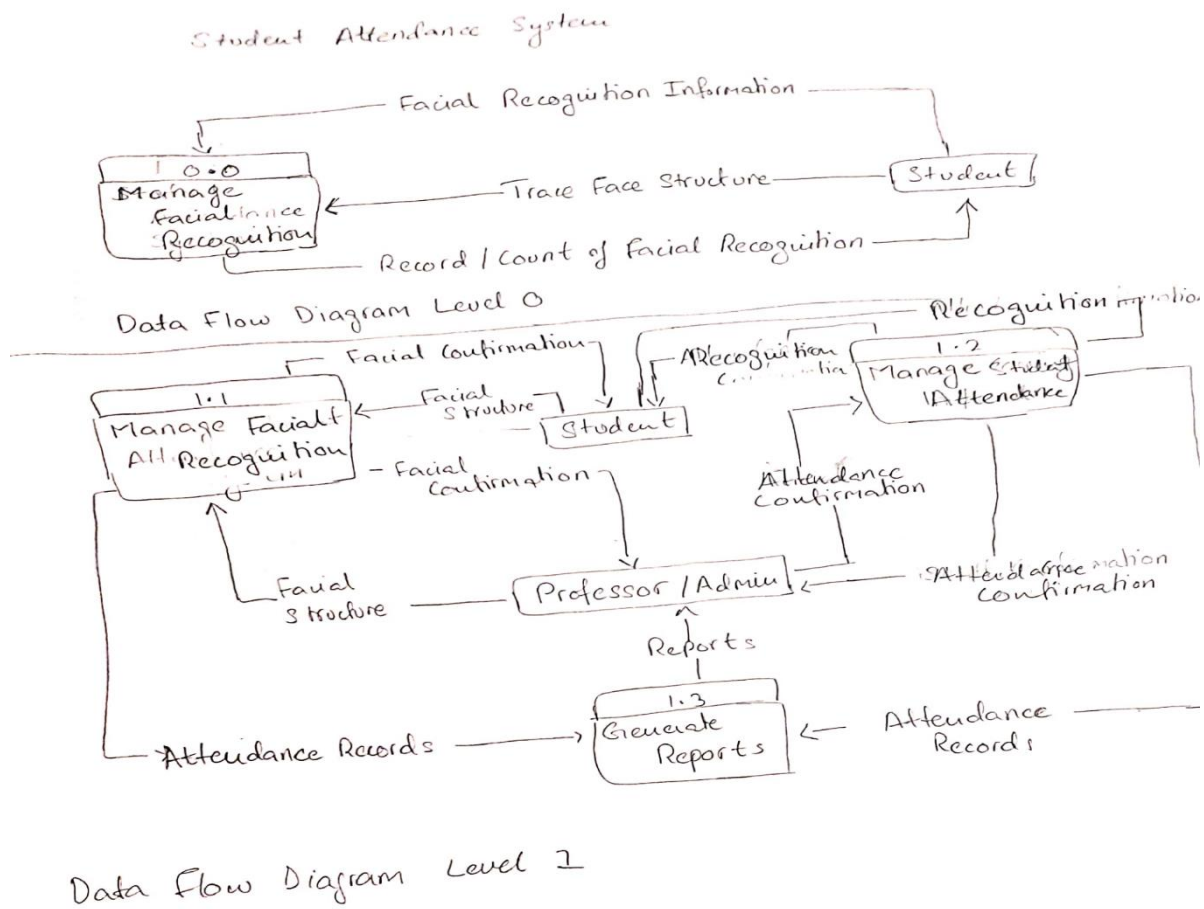 Student Attendance System
Facial Recognition Information
0.0
Manage
Facial
Recognition
Trace Face Structure
Student
Record / Count of Facial Recognition
Data Flow Diagram Level 0
Recognition
Facial Confirmation
Recognition
1.2
Manage Student
Attendance
1.1
Manage Facial
Recognition
Facial
Structure
Student
Facial
Confirmation
Attendance
Confirmation
Facial
Structure
Professor / Admin
Attendance
Confirmation
Reports
1.3
Generate
Reports
Attendance Records
Attendance
Records
Data Flow Diagram Level 1